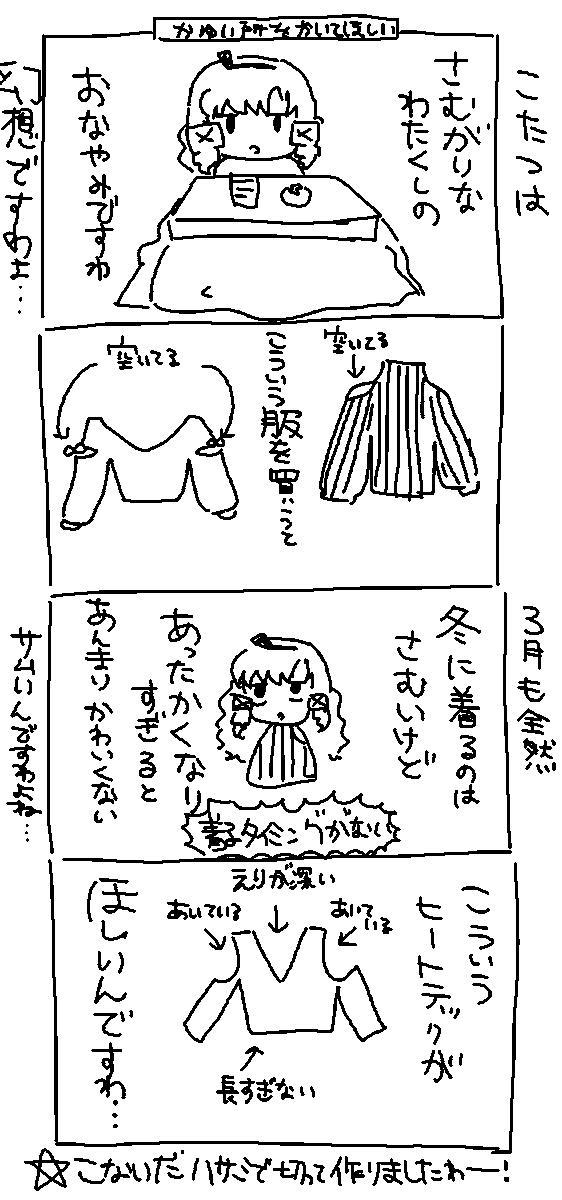 かゆい所をかいてほしい
こたつは
さむがりな
わたくしの
おなやみですわ
幻想ですわよ…
空いてる
こういう服を買って
空いてる
3月も全然
冬に着るのは
さむいけど
あったかくなり
すぎると
あんまりかわいくない
着るタイミングがない
サムいんですわよね…
こういう
ヒートテックが
えりが深い
あいている
あいて
いる
長すぎない
ほしいんですわ…
☆こないだハサミで切って作りましたわー!